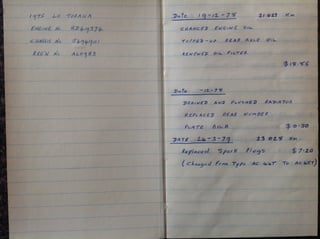 1975 LH TORANA
ENGINE No
CHASSIS No
BODY No
Date: 19-12-78 Km
CHANGED ENGINE OIL
TOPPED-UP REAR AXLE OIL
RENEWED OIL FILTER
$15.55
Date -12-78
DRAINED AND FLUSHED RADIATOR
REPLACED REAR NUMBER
PLATE BULB $0.30
DATE 26-3-79 23 025 Km.
Replaced Spark Plugs $7.20
(Changed from Type TO